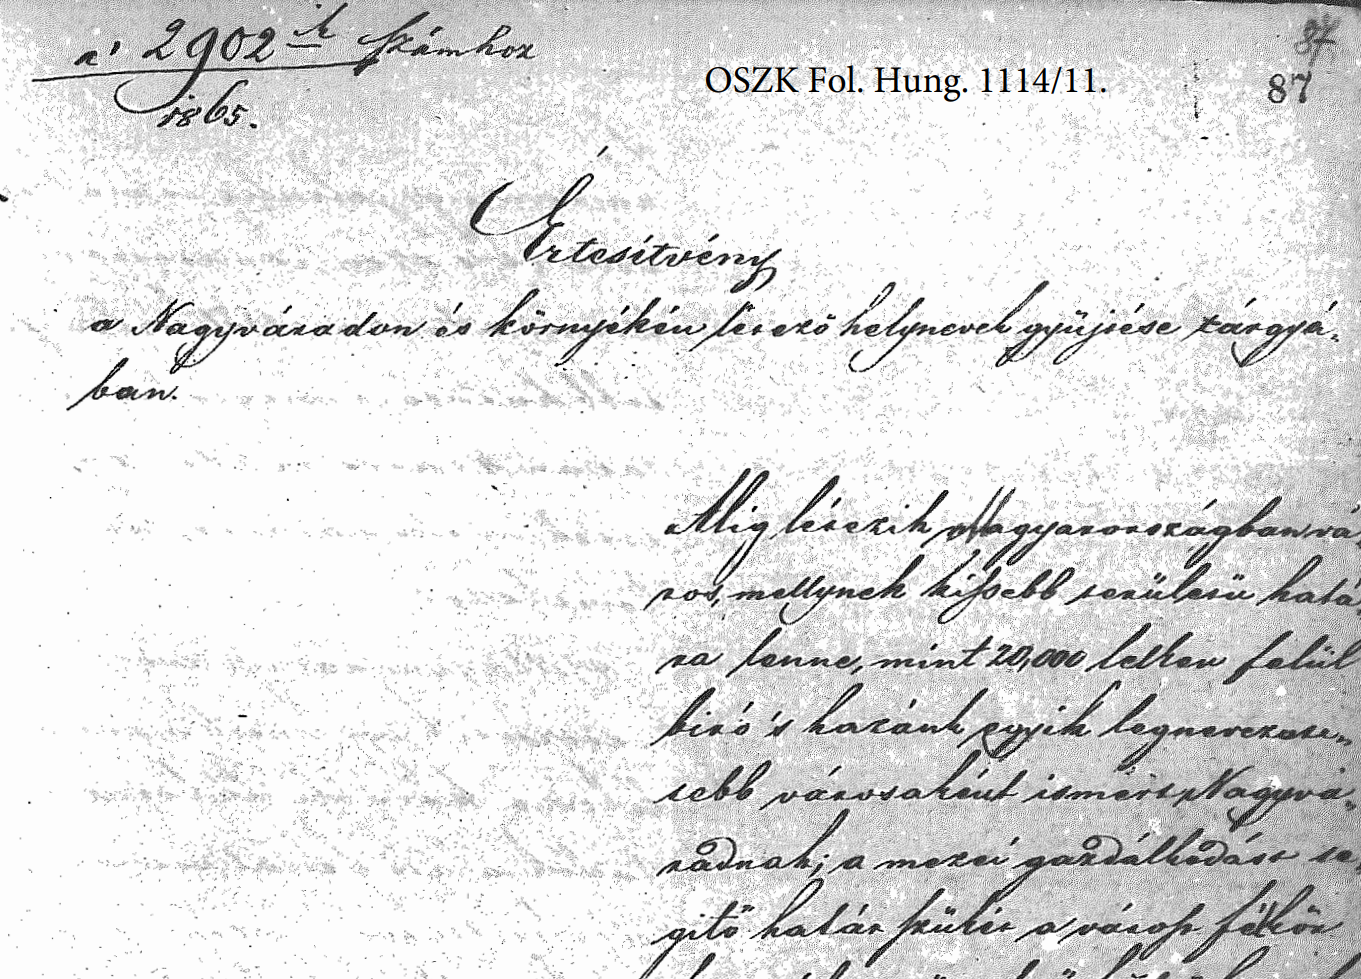 a' 2902ik számhoz
1865.
OSZK Fol. Hung. 1114/11.
87
87
Értesítvény
a Nagyváradon és környékén létező helynevek gyüjtése tárgyá-
ban.
Alig létezik Magyarországban vá-
ros, mellynek kissebb területü hatá
ra lenne, mint 20,000 lelken felül
biró 's hazánk egyik legnevezete-
sebb városaként ismert Nagyvá-
radnak; a mezei gazdálkodást se-
gitő határ szükét a város